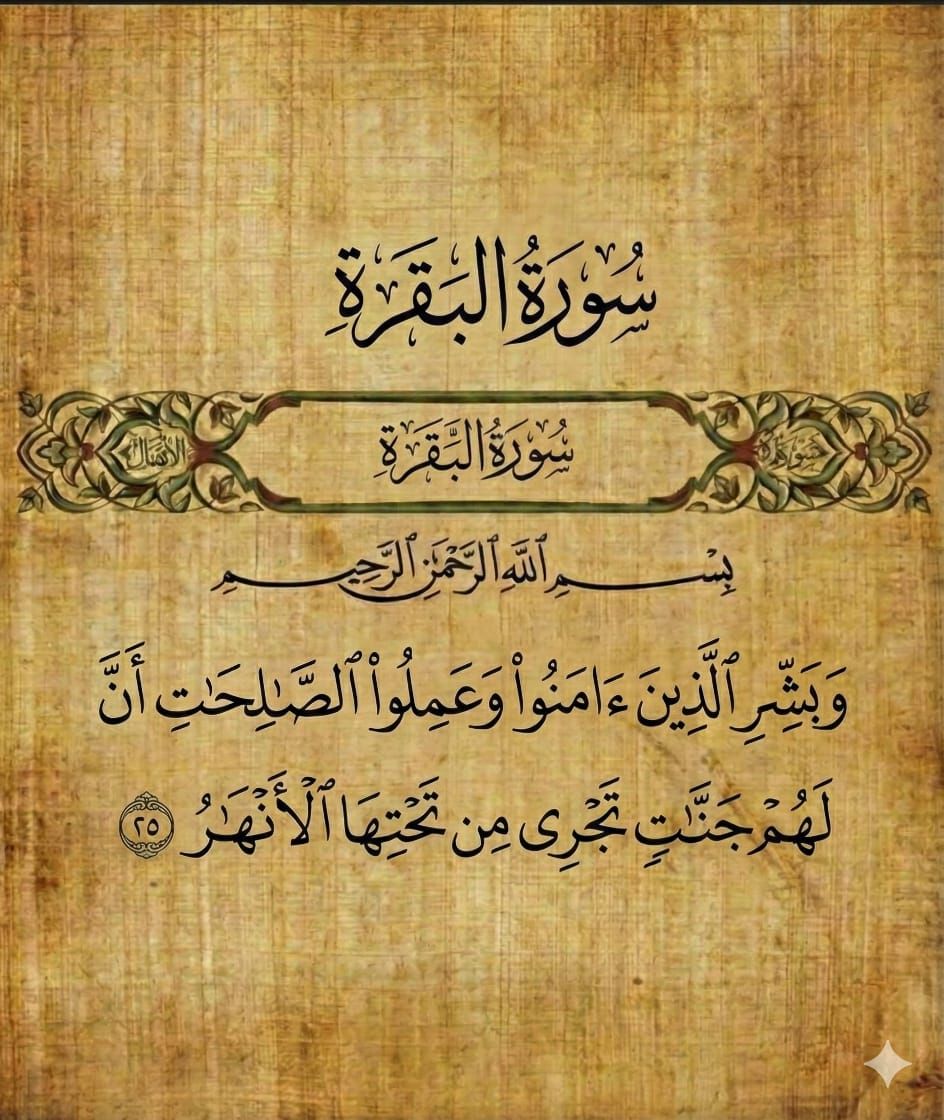 سُورَةُ البَقَرَةِ
سُورَةُ البَّقَرَةِ
سورة
الأنفال
بِسْمِ ٱللَّهِ ٱلرَّحْمَٰنِ ٱلرَّحِيمِ
وَبَشِّرِ ٱلَّذِينَ ءَامَنُوا۟ وَعَمِلُوا۟ ٱلصَّٰلِحَٰتِ أَنَّ
لَهُمْ جَنَّٰتٍ تَجْرِى مِن تَحْتِهَا ٱلْأَنْهَٰرُ ٢٥